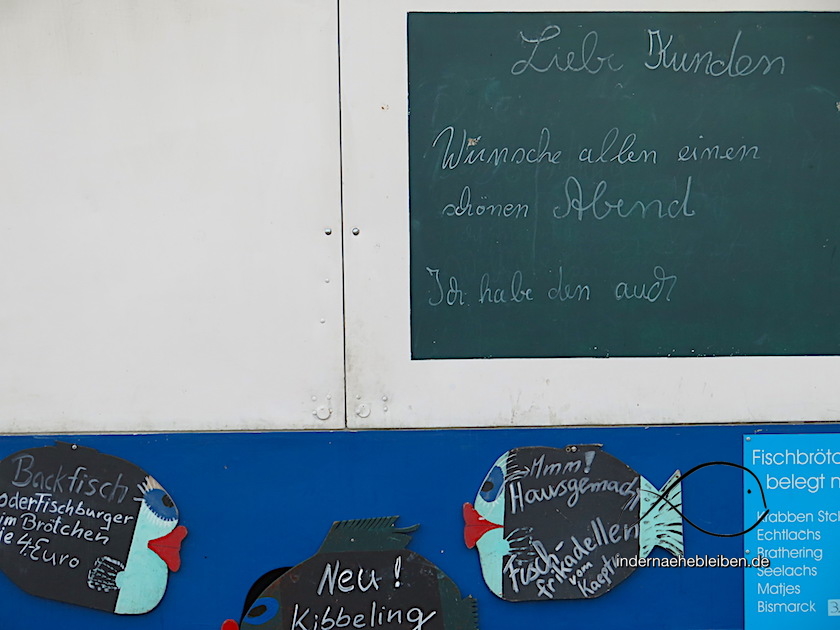 Liebe Kunden
Wünsche allen einen
schönen Abend
Ich habe den auch
Backfisch
oder Fischburger
im Brötchen
je 4.Euro
Neu!
Kibbeling
Mmm!
Hausgemacht
Fisch-
frikadellen
vom
Kaeptn
Fischbröt
belegt
Krabben Stck
Echtlachs
Brathering
Seelachs
Matjes
Bismarck
indernaehebleiben.de